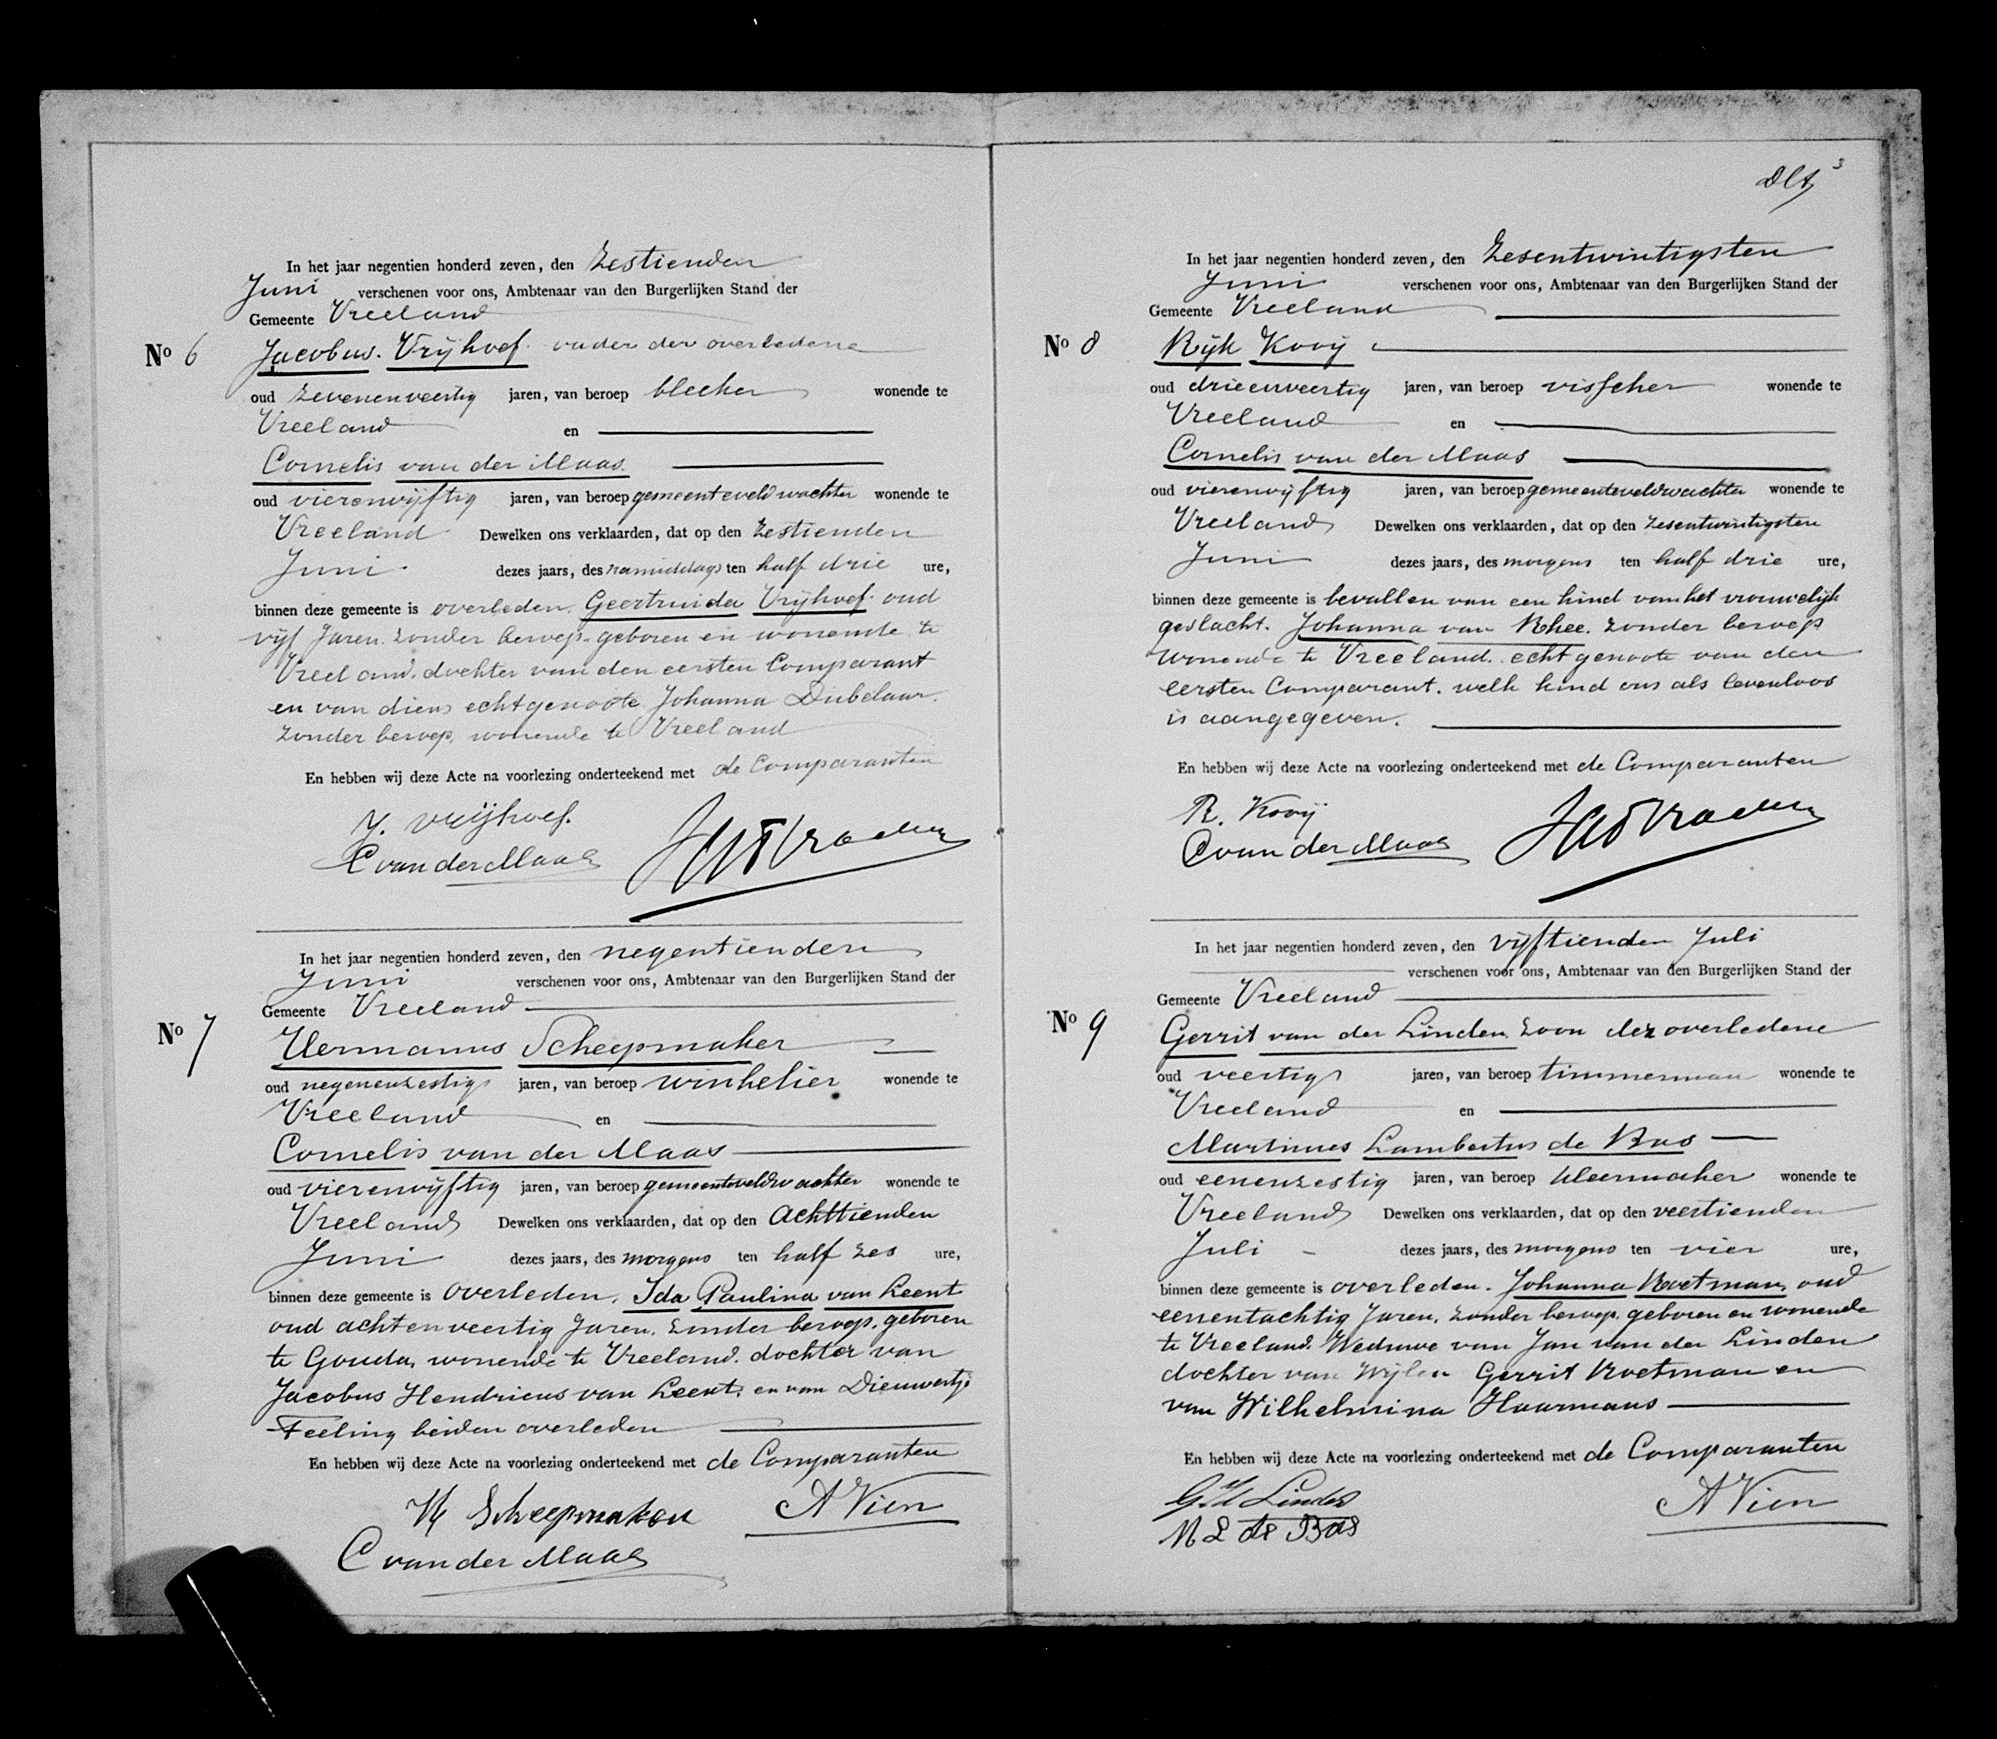 In het jaar negentien honderd zeven, den zestienden
Juni verschenen voor ons, Ambtenaar van den Burgerlijken Stand der
Gemeente Vreeland
No 6 Jacobus Vrijhoef vader der overledene
oud zevenenveertig jaren, van beroep bleeker wonende te
Vreeland en
Cornelis van der Maas
oud vierenvijftig jaren, van beroep gemeenteveldwachter wonende te
Vreeland Dewelken ons verklaarden, dat op den zestienden
Juni dezes jaars, des namiddags ten half drie ure,
binnen deze gemeente is overleden. Geertruida Vrijhoef oud
vijf Jaren. zonder beroep. geboren en wonende te
Vreeland. dochter van den eersten Comparant
en van diens echtgenoote Johanna Dubelaar.
zonder beroep, wonende te Vreeland
En hebben wij deze Acte na voorlezing onderteekend met de Comparanten
J. Vrijhoef.
C van der Maas
In het jaar negentien honderd zeven, den negentienden
Juni verschenen voor ons, Ambtenaar van den Burgerlijken Stand der
Gemeente Vreeland
No 7 Hermanus Scheepmaker
oud negenenzestig jaren, van beroep winkelier wonende te
Vreeland en
Cornelis van der Maas
oud vierenvijftig jaren, van beroep gemeenteveldwachter wonende te
Vreeland Dewelken ons verklaarden, dat op den achttienden
Juni dezes jaars, des morgens ten half zes ure,
binnen deze gemeente is overleden, Ida Paulina van Leent
oud achtenveertig Jaren. zonder beroep. geboren
te Gouda, wonende te Vreeland. dochter van
Jacobus Hendricus van Leent, en van Dieuwertje
Feeling beiden overleden
En hebben wij deze Acte na voorlezing onderteekend met de Comparanten
H Scheepmaker A Vien
C van der Maas
3
In het jaar negentien honderd zeven, den zesentwintigsten
Juni verschenen voor ons, Ambtenaar van den Burgerlijken Stand der
Gemeente Vreeland
No 8 Rijk Kooij
oud drieenveertig jaren, van beroep visscher wonende te
Vreeland en
Cornelis van der Maas
oud vierenvijftig jaren, van beroep gemeenteveldwachter wonende te
Vreeland Dewelken ons verklaarden, dat op den zesentwintigsten
Juni dezes jaars, des morgens ten half drie ure,
binnen deze gemeente is bevallen van een kind van het vrouwelijk
geslacht. Johanna van Rhee. zonder beroep
wonende te Vreeland. echtgenoote van den
eersten Comparant. welk kind ons als levenloos
is aangegeven.
En hebben wij deze Acte na voorlezing onderteekend met de Comparanten
R. Kooij
C van der Maas
In het jaar negentien honderd zeven, den vijftienden Juli
verschenen voor ons, Ambtenaar van den Burgerlijken Stand der
Gemeente Vreeland
No 9 Gerrit van der Linden zoon der overledene
oud veertig jaren, van beroep timmerman wonende te
Vreeland en
Martinus Lambertus de Bas
oud eenenzestig jaren, van beroep kleermaker wonende te
Vreeland Dewelken ons verklaarden, dat op den veertienden
Juli dezes jaars, des morgens ten vier ure,
binnen deze gemeente is overleden. Johanna Roetman, oud
eenentachtig Jaren, zonder beroep. geboren en wonende
te Vreeland. Weduwe van Jan van der Linden
dochter van Wijlen Gerrit Roetman en
van Wilhelmina Haarmans
En hebben wij deze Acte na voorlezing onderteekend met de Comparanten
G v d Linden A Vien
M L de Bas